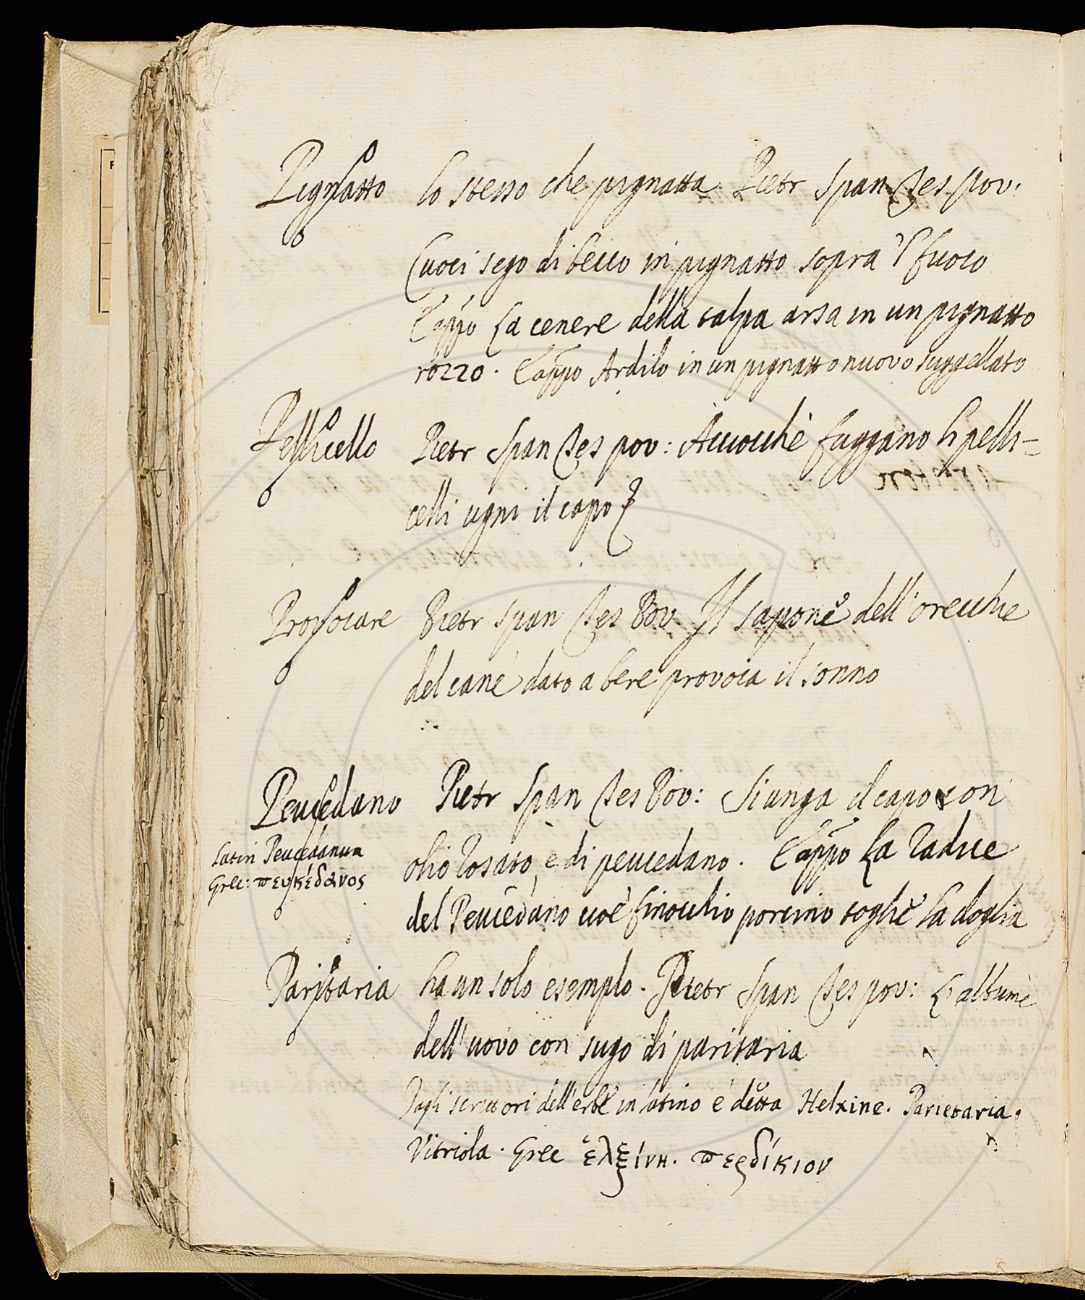 Pignatto lo stesso che pignatta Pietr Span Tes pov.
Cuoci sego di becco in pignatto sopra 'l fuoco
Cappo La cenere della talpa arsa in un pignatto
rozzo. Cappo Ardilo in un pignatto nuovo suggellato
Pellicello Pietr Span Tes pov: Acciocchè fuggano li pelli-
celli ugni il capo
Provocare Pietr Span Tes Pov Il sapone dell'orecchie
del cane dato a bere provoca il sonno
Peucedano Pietr Span Tes Pov: Si unga il capo con
Latin Peucedanum
Grec: πευκέδανος
olio rosato, e di peucedano. Cappo La radice
del Peucedano cioè finocchio porcino toglie la doglia
Paritaria ha un solo esempio. Pietr Span Tes pov: L'albume
dell'uovo con sugo di paritaria
Dagli scrittori dell'erbe in latino è detta Helxine. Parietaria.
Vitriola. Grec ἑλξίνη. περδίκιον